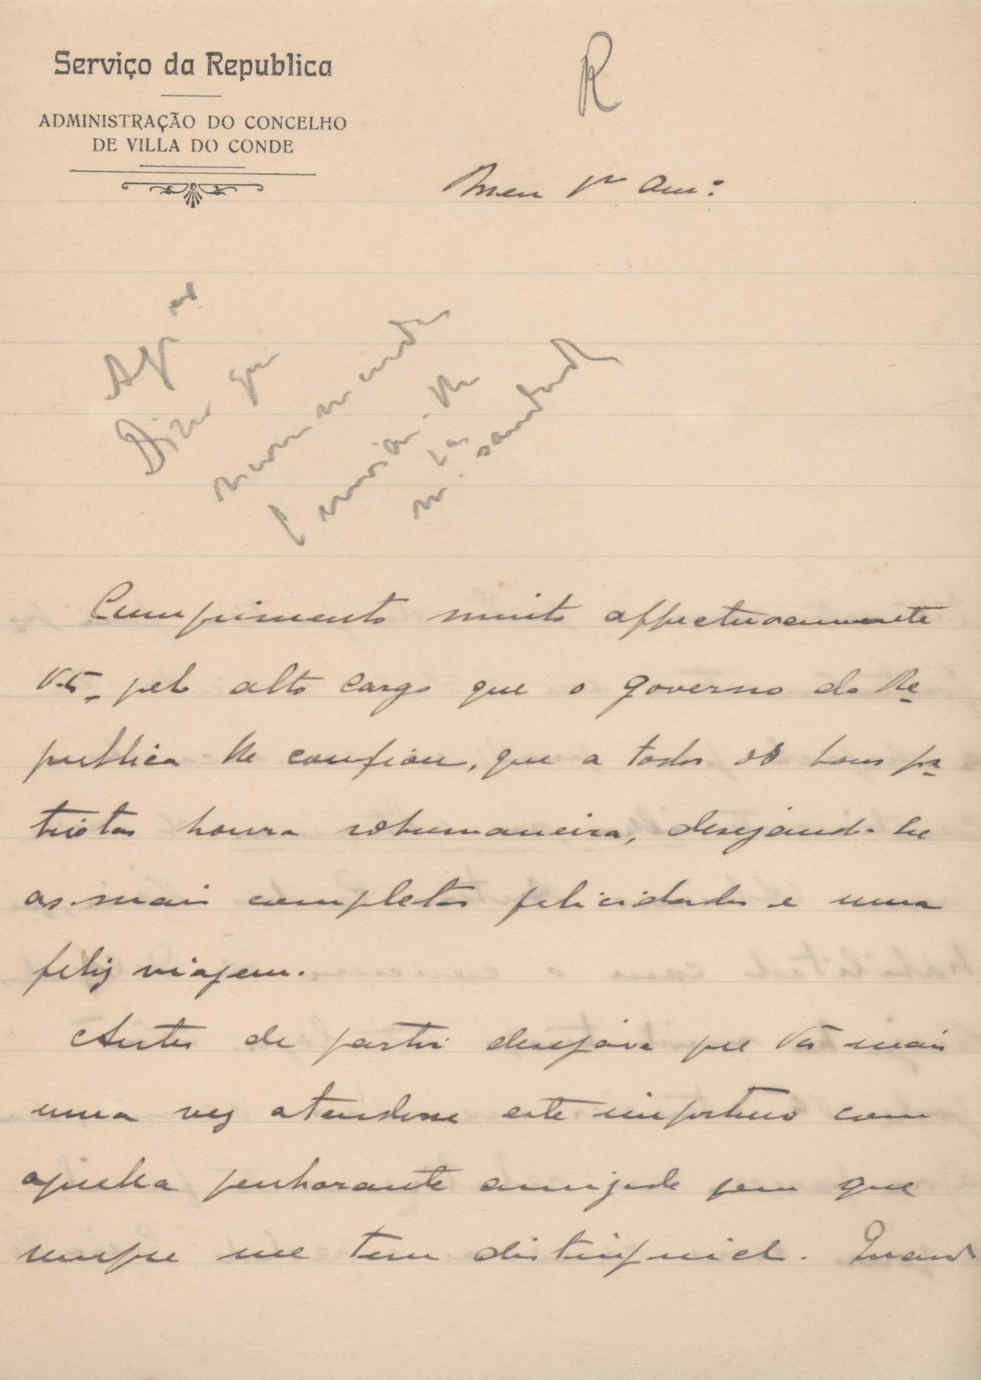 Serviço da Republica
ADMINISTRAÇÃO DO CONCELHO
DE VILLA DO CONDE
R
Meu Am.º
Dizer que
Cumprimento muito affectuosamente
V. pelo alto cargo que o governo da Re-
publica lhe confiou, que a todos os bons pa-
triotas honra sobremaneira, desejando-lhe
as mais completas felicidades e uma
feliz viagem.
Antes de partir desejava que V. mais
uma vez attendesse este importuno com
aquella penhorante amizade com que
sempre me tem distinguido. Quando